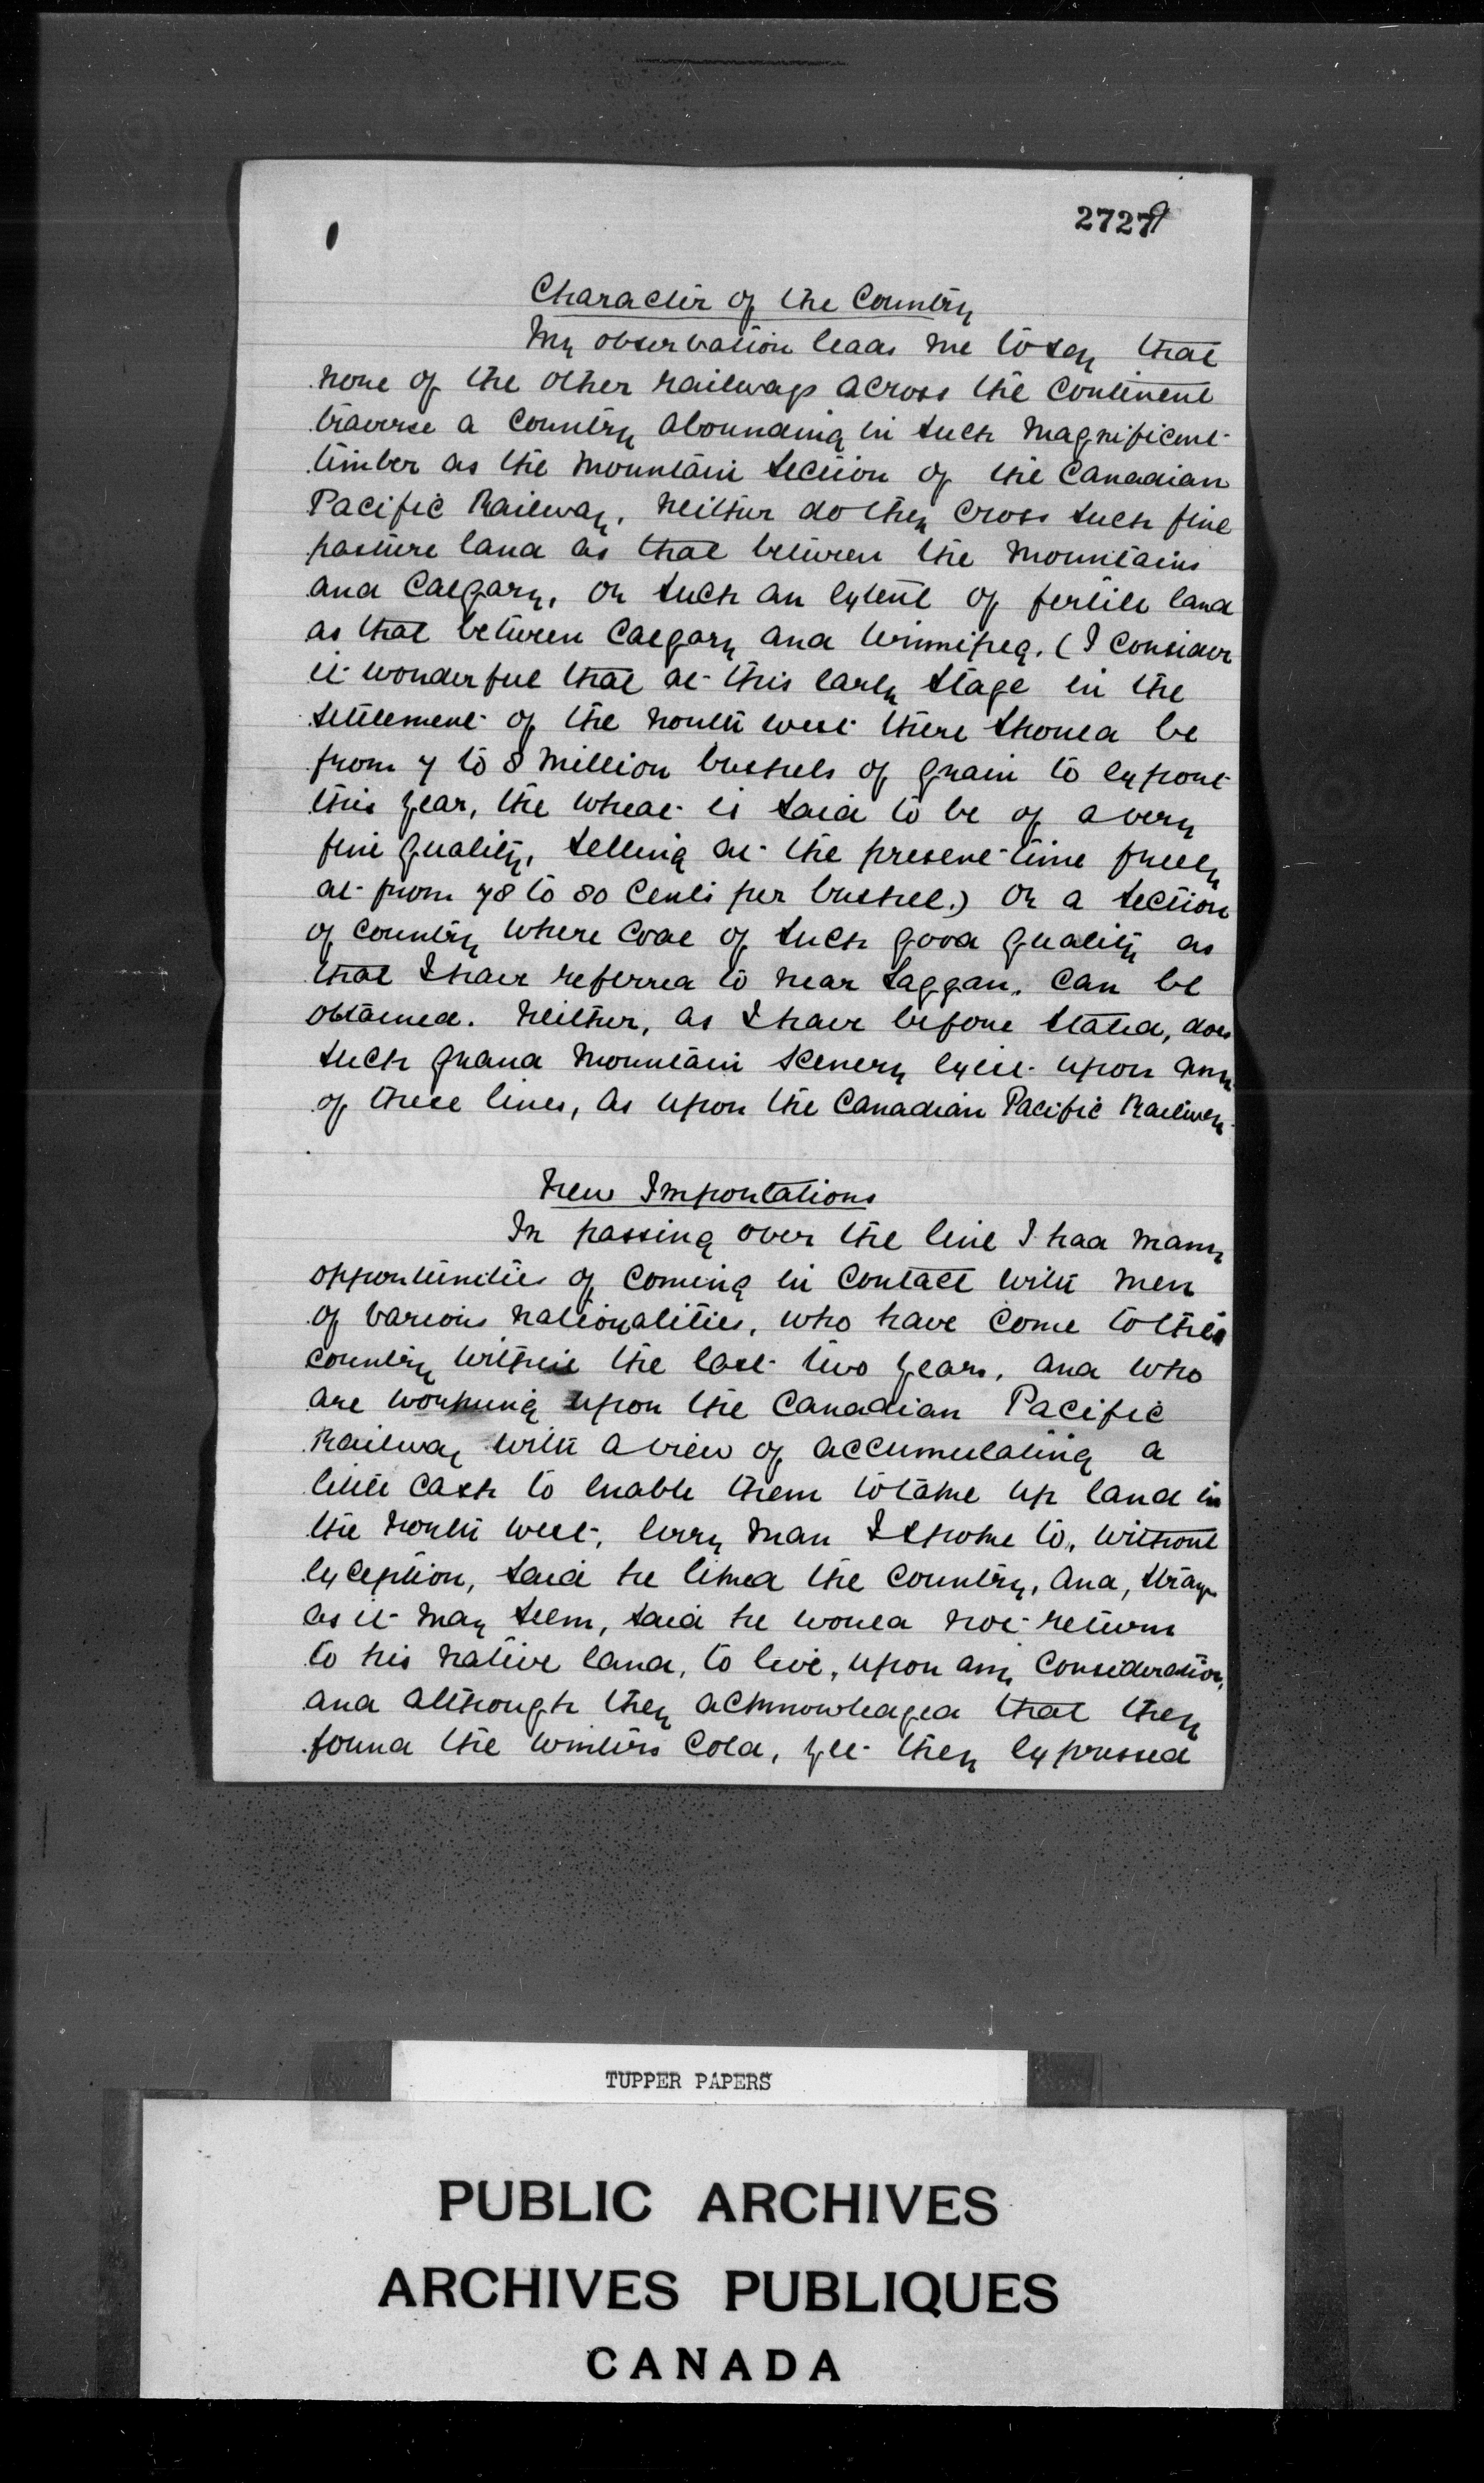 27279
Character of the Country
My observation leads me to say that
none of the other railways across the Continent
traverse a Country abounding in such magnificent
timber as the Mountain Section of the Canadian
Pacific Railway, neither do they cross such fine
pasture land as that between the Mountains
and Calgary, or such an extent of fertile land
as that between Calgary and Winnipeg. (I consider
it wonderful that at this early stage in the
settlement of the North West there should be
from 7 to 8 million bushels of grain to export
this year, the wheat is said to be of a very
fine quality, selling at the present time freely
at from 78 to 80 Cents per bushel.) Or a section
of country where coal of such good quality as
that I have referred to near Laggan, can be
obtained. Neither, as I have before stated, does
such grand mountain scenery exist upon any
of these lines, as upon the Canadian Pacific Railway.
New Importations
In passing over the line I had many
opportunities of coming in contact with men
of various nationalities, who have come to this
country within the last two years, and who
are working upon the Canadian Pacific
Railway with a view of accumulating a
little cash to enable them to take up land in
the North West, every man I spoke to, without
exception, said he liked the country, and, strange
as it may seem, said he would not return
to his native land, to live, upon any consideration,
and although they acknowledged that they
found the winters cold, yet they expressed
TUPPER PAPERS
PUBLIC ARCHIVES
ARCHIVES PUBLIQUES
CANADA